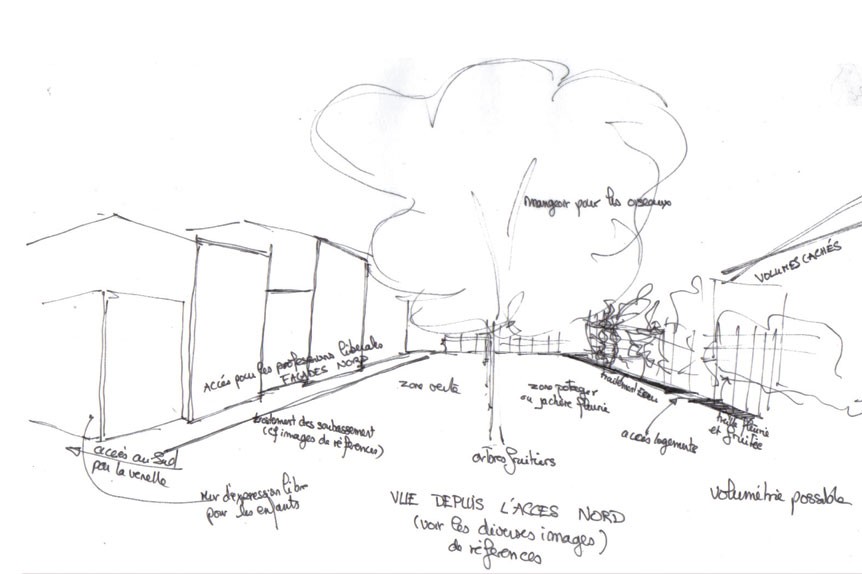 mangeoir pour les oiseaux
VOLUMES CACHÉS
Accès pour les professions libérales
FAÇADES NORD
zone verte
zone potager
ou jachère fleurie
traitement des soubassement
(cf images de références)
accès logements
treille fleurie
et fruitée
accès au Sud
par la venelle
arbres fruitiers
Mur d'expression libre
pour les enfants
VUE DEPUIS L'ACCES NORD
(voir les diverses images)
de références
Volumétrie possible